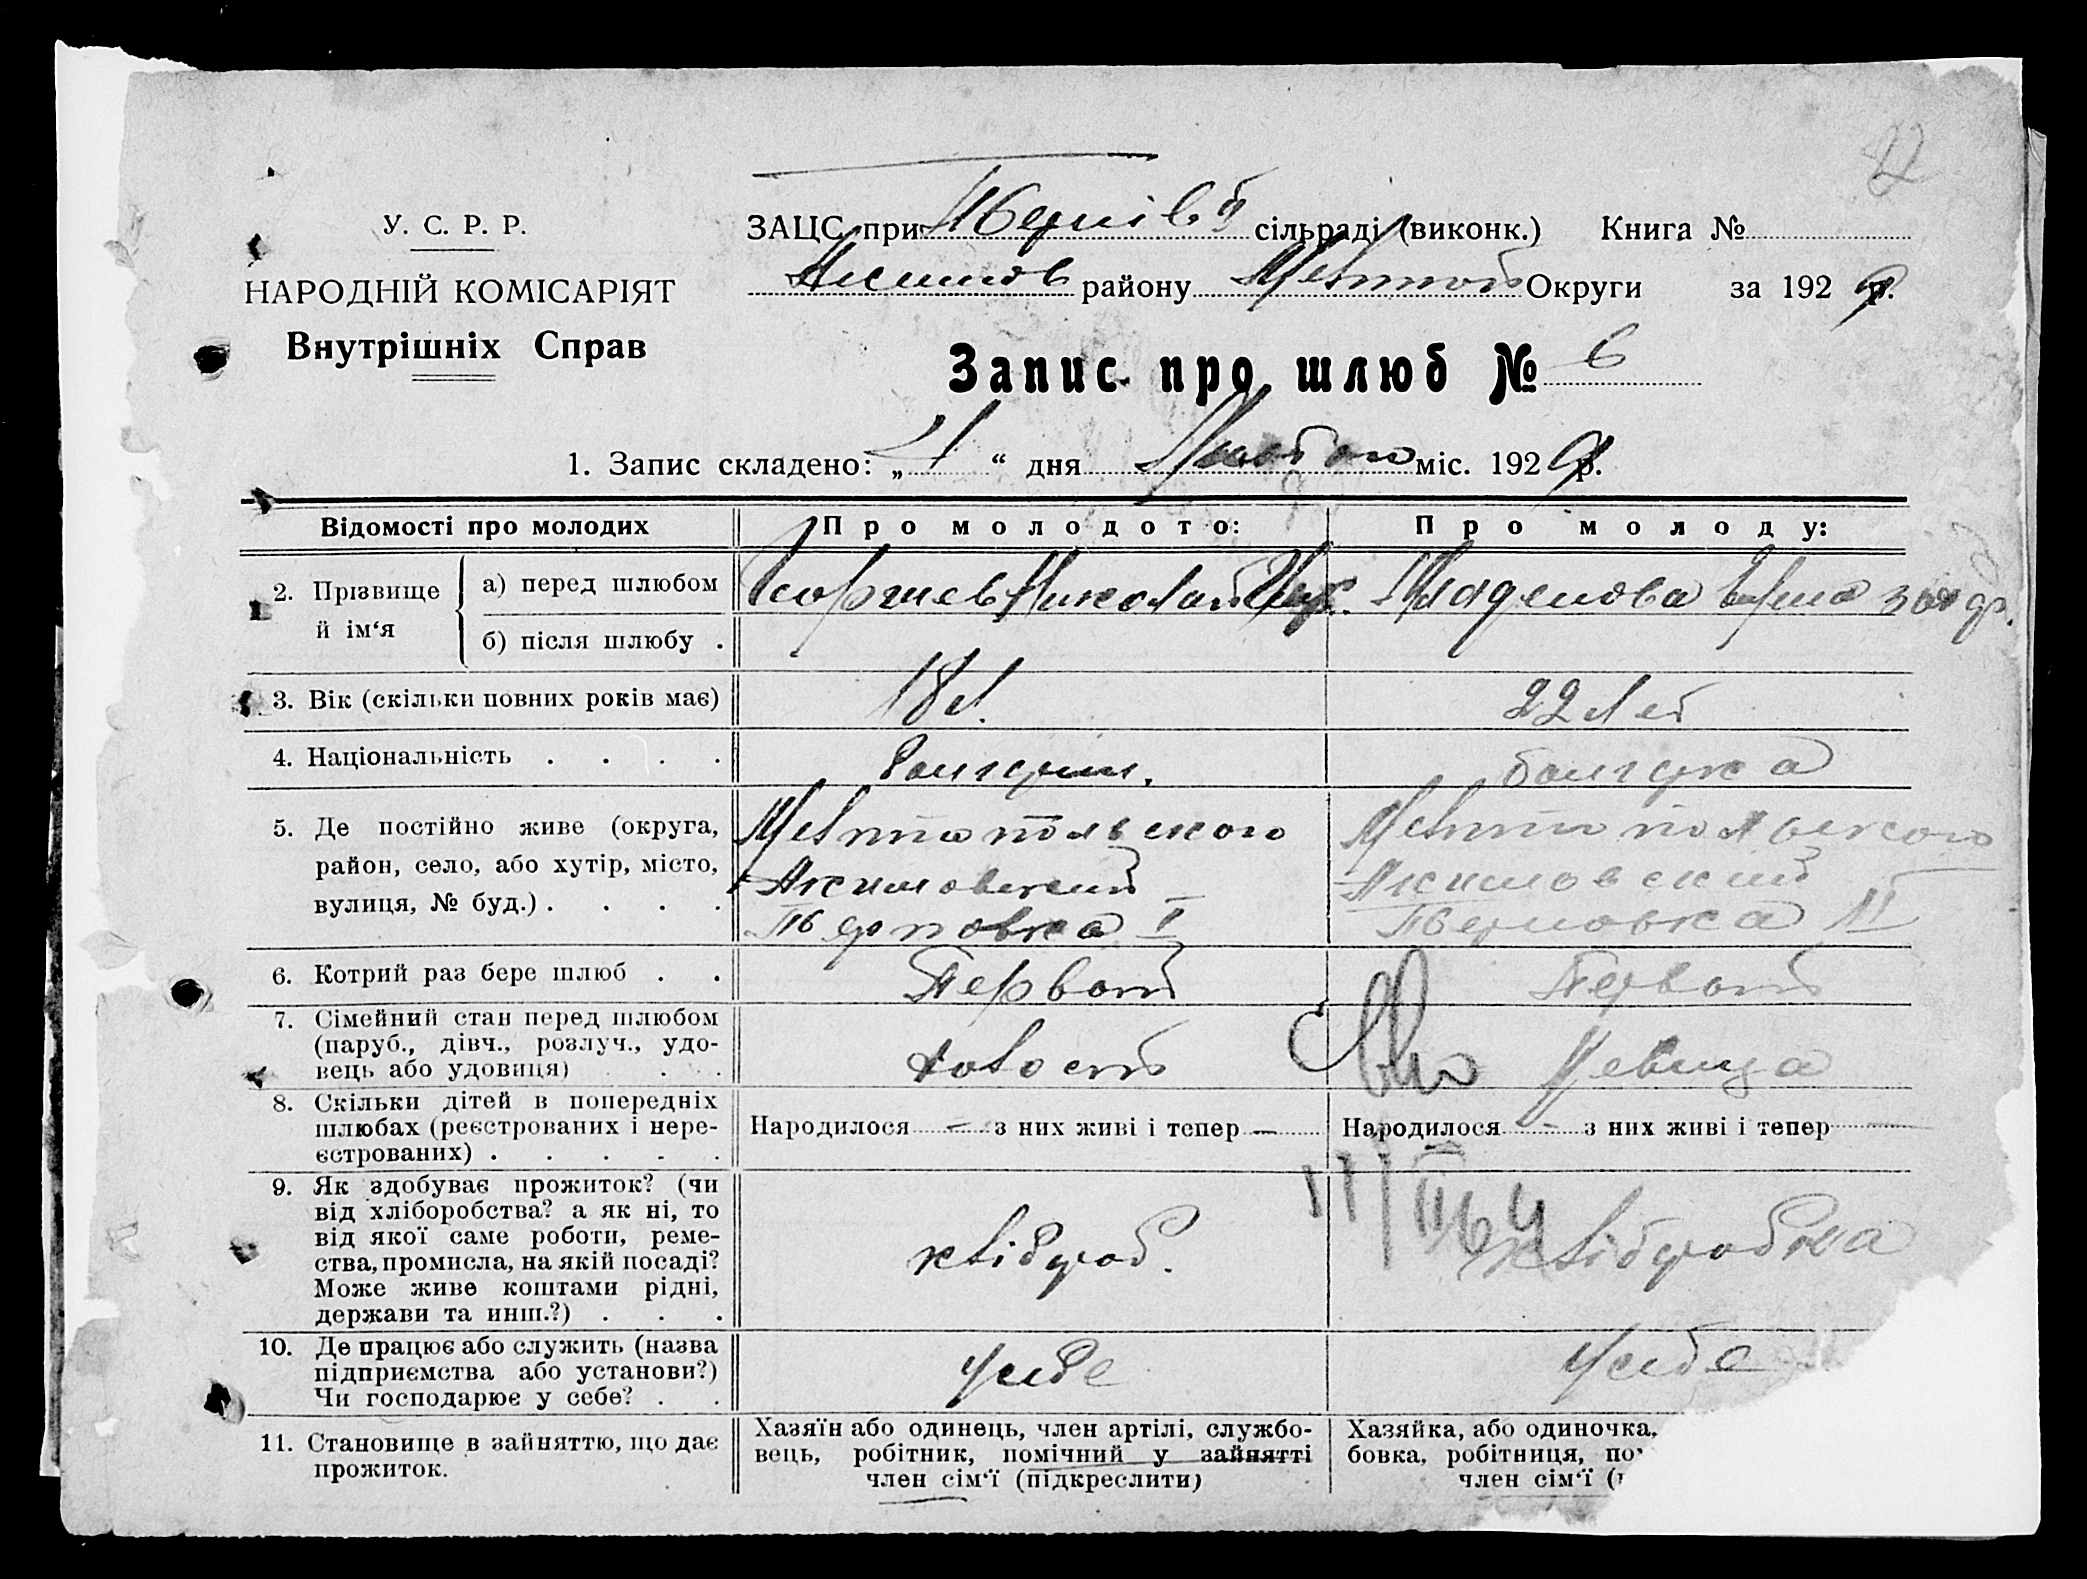 82
У. С. Р. Р.
НАРОДНІЙ КОМІСАРІЯТ
Внутрішніх Справ
ЗАЦС при сільраді (виконк.) Книга №
Акимов району Мелітоп Округи за 1929 р.
Запис про шлюб № 6
1. Запис складено: „ “ дня міс. 1929 р.
Відомості про молодих
Про молодого:
Про молоду:
2. Прізвище й ім‘я
а) перед шлюбом
Георгиев Николай
Младенова
б) після шлюбу .
3. Вік (скільки повних років має)
18 л.
22 лет
4. Національність . . . .
болгарин.
болгарка
5. Де постійно живе (округа,
район, село, або хутір, місто,
вулиця, № буд.) . . . .
Мелитопольского
Акимовский
Тверповка I
Мелитопольского
Акимовский
II
6. Котрий раз бере шлюб . .
Первый
Первый
7. Сімейний стан перед шлюбом
(паруб., дівч., розлуч., удо-
вець або удовиця) . . .
холост
девица
8. Скільки дітей в попередніх
шлюбах (реєстрованих і нере-
єстрованих) . . . . .
Народилося — з них живі і тепер —
Народилося — з них живі і тепер
11/II 64
9. Як здобуває прожиток? (чи
від хліборобства? а як ні, то
від якої саме роботи, реме-
ства, промисла, на якій посаді?
Може живе коштами рідні,
держави та инш.?) . . .
хлібороб.
хліборобка
10. Де працює або служить (назва
підприємства або установи?)
Чи господарює у себе? . .
у себе
у себе
11. Становище в зайняттю, що дає
прожиток.
Хазяїн або одинець, член артілі, службо-
вець, робітник, помічний у зайнятті
член сім‘ї (підкреслити)
Хазяйка, або одиночка,
бовка, робітниця,
член сім‘ї